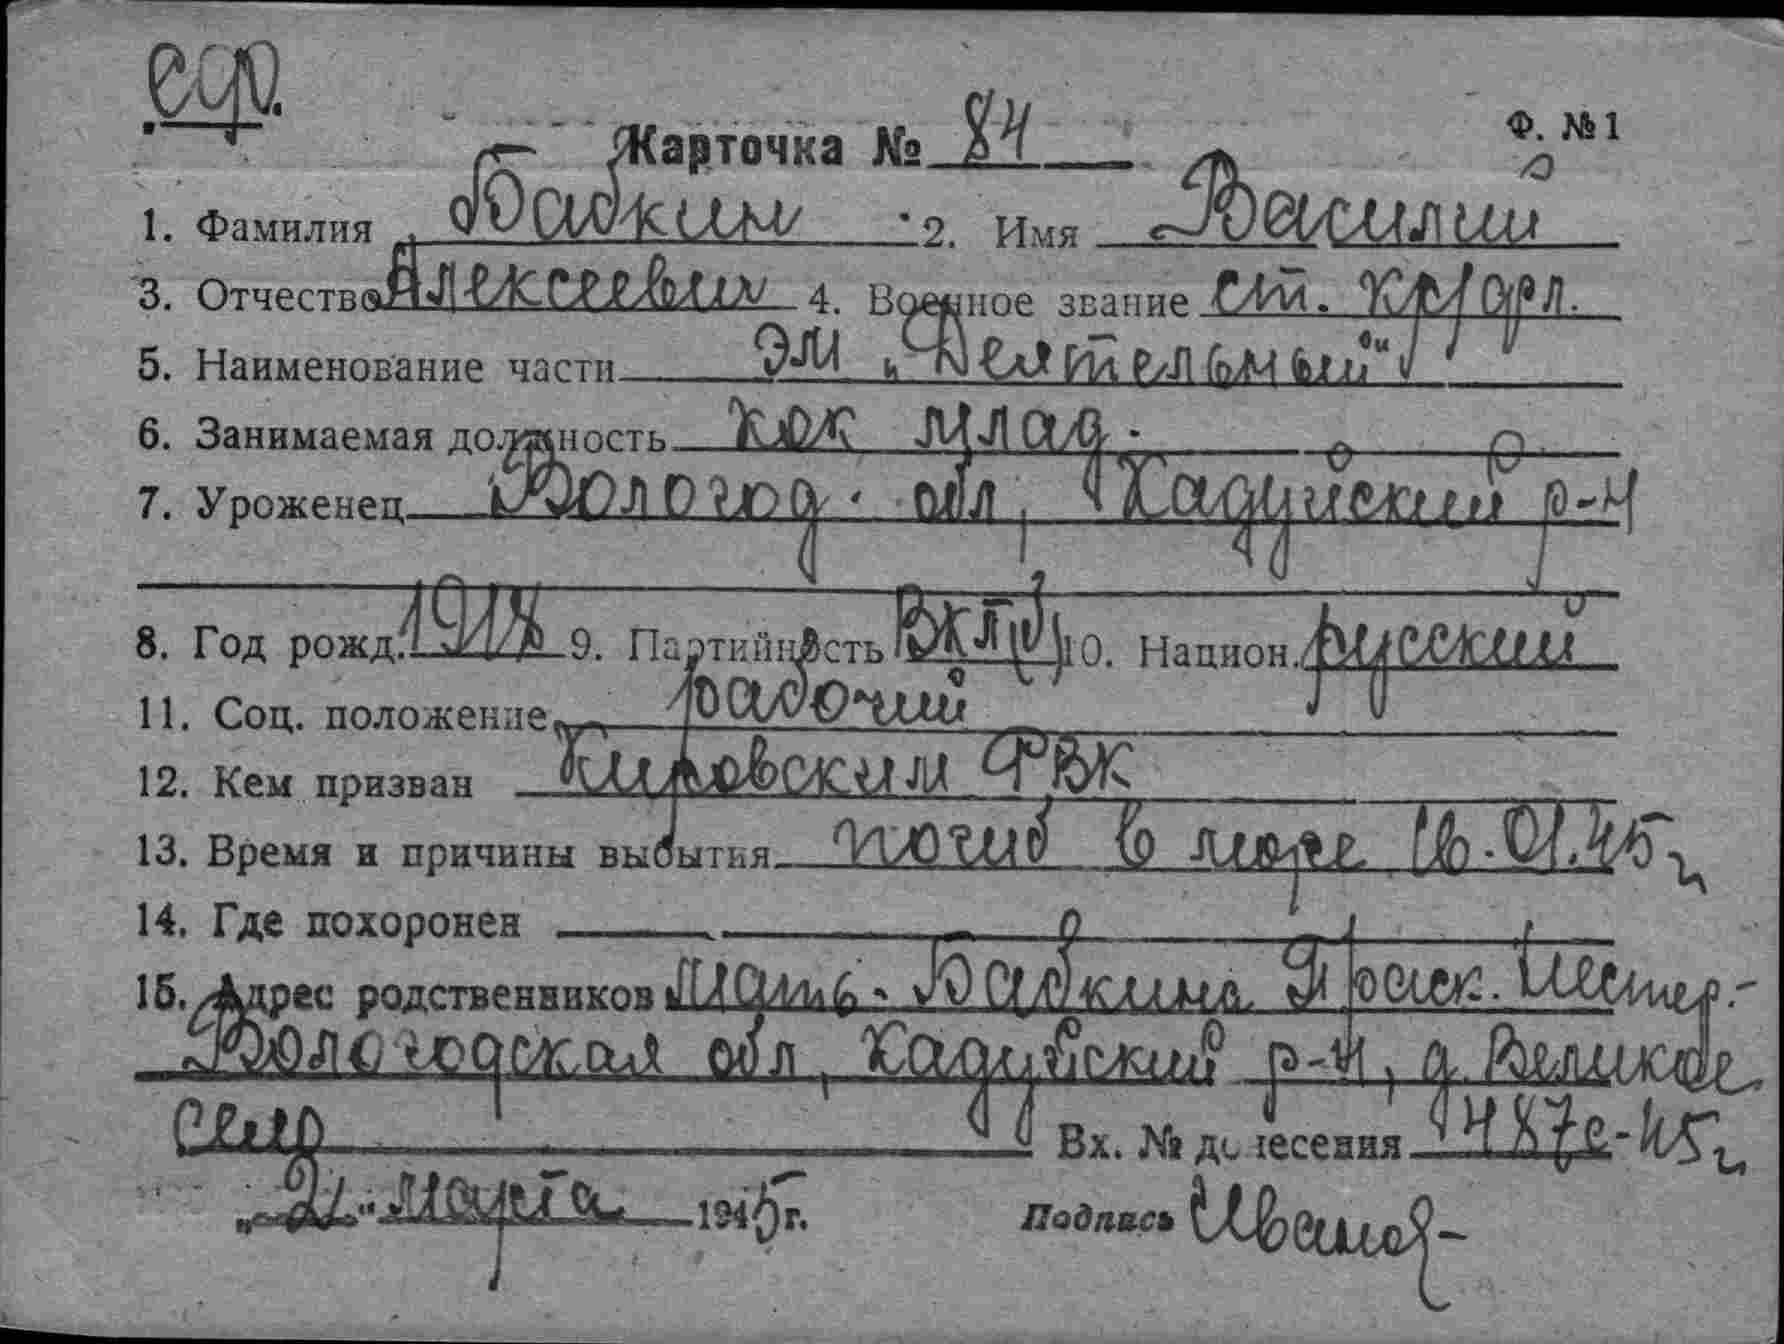 Карточка № 84
Ф. №1
1. Фамилия Бабкин 2. Имя Василий
3. Отчество Алексеевич 4. Военное звание ст. кр.
5. Наименование части ЭМ "Деятельный"
6. Занимаемая должность кок млад.
7. Уроженец Вологод. обл, Кадуйский р-н
8. Год рожд. 1918 9. Партийность ВКП(б) 10. Национ. русский
11. Соц. положение рабочий
12. Кем призван Кировским РВК
13. Время и причины выбытия погиб в море 16.01.45г
14. Где похоронен
15. Адрес родственников мать - Бабкина Праск.
Вологодская обл, Кадуйский р-н, д. Великое
село Вх. № донесения 487с-45г
"21" марта 1945г.
Подпись Иванов